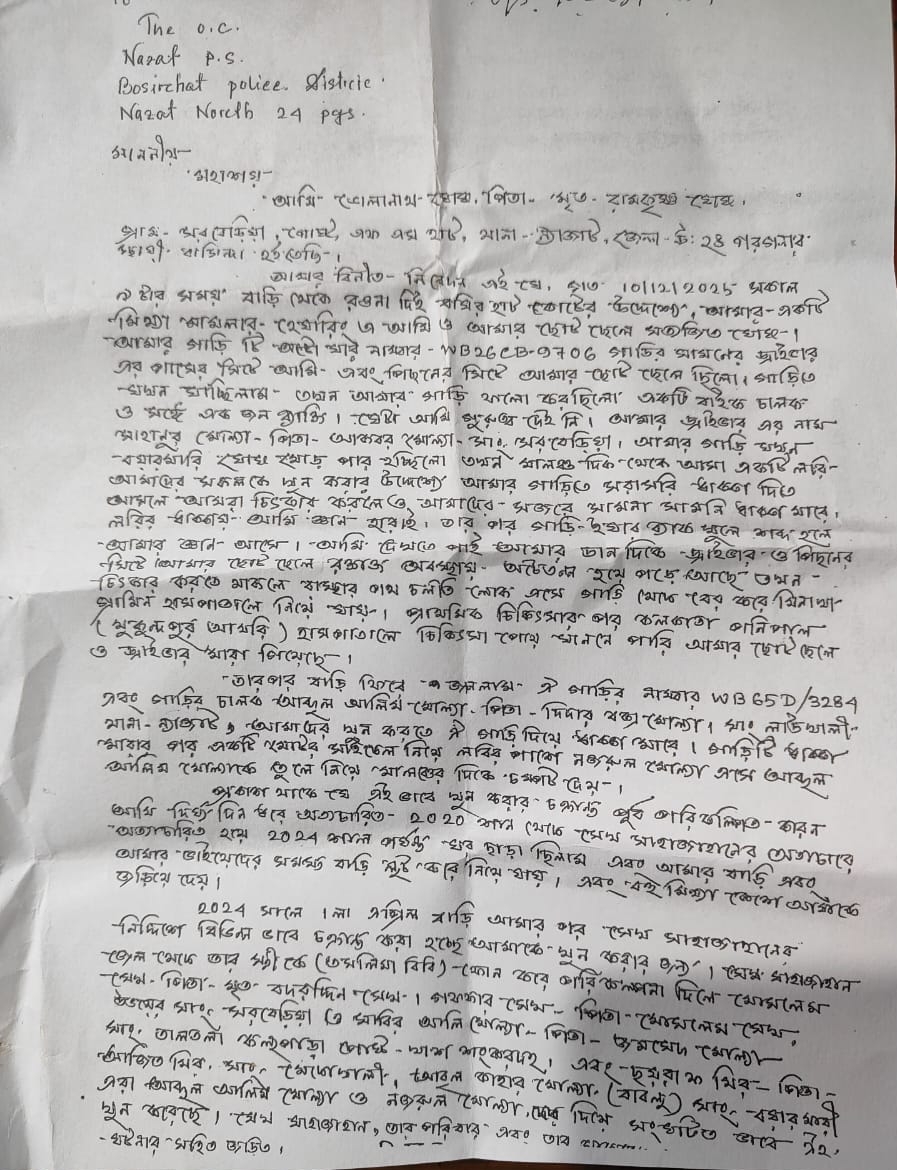 The O.C.
Nazat P.S.
Bosirchat police Districe.
Nazat North 24 pgs.
মাননীয়
মহাশয়-
আমি ভোলানাথ ঘোষ, পিতা- মৃত- রামকৃষ্ণ ঘোষ,
গ্রাম- সরবেড়িয়া, পোষ্ট, এফ এম হাট, থানা- ন্যাজাট, জেলা- উঃ ২৪ পরগনার
স্থায়ী বাসিন্দা হইতেছি।
আমার বিনীত- নিবেদন এই যে, গত 10/12/2025 সকাল
৮ টার সময় বাড়ি থেকে রওনা দিই বসির হাট কোর্টের উদ্দেশ্যে, আমার- একটি
মিথ্যা মামলার- হেয়ারিং এ আমি ও আমার ছোট ছেলে সত্যজিত ঘোষ-।
আমার গাড়ি টি অল্টো নাম্বার - WB26CB-9706 গাড়ির সামনের ড্রাইভার
এর পাশের সিটে আমি- এবং পিছনের সিটে আমার ছোট ছেলে ছিলো, গাড়িতে
যখন যাচ্ছিলাম- তখন আমার গাড়ি ফলো করছিলো একটি বাইক চালক
ও সঙ্গে এক জন ব্যাক্তি। সেটা আমি দেই নি। আমার ড্রাইভার এর নাম
সাহানুর মোল্যা- পিতা- আকবর মোল্যা- সাং, সরবেড়িয়া, আমার গাড়ি যখন
বয়ারমারি মোড় পার হচ্ছিলো তখন মালঞ্চ দিক থেকে আসা একটি লরি-
আমাদের সকলকে খুন করার উদ্দেশ্যে আমার গাড়িতে সরাসরি ধাক্কা দিতে
আসলে আমরা চিৎকার করলেও আমাদের- সজরে সামনা সামনি ধাক্কা মারে,
লরির ধাক্কায়- আমি জ্ঞান হারাই, তার পর গাড়ি- খুলে শব্দ হলে
আমার জ্ঞান- আসে। আমি দেখতে পাই আমার ডান দিকে ড্রাইভার ও পিছনের
সিটে আমার ছোট ছেলে রক্তাক্ত অবস্থায়- অচৈতন্য হয়ে পড়ে আছে তখন-
চিৎকার করতে থাকলে রাস্তার পথ চলতি লোক এসে গাড়ি থেকে বের করে মিনাখা
গ্রামিন হাসপাতালে নিয়ে যায়। প্রাথমিক চিকিৎসার পর কলকাতা মনিপাল
(মুকুন্দপুর আমরি) হাসপাতালে চিকিৎসা পেয়ে জানতে পারি আমার ছোট ছেলে
ও ড্রাইভার মারা গিয়েছে।
তারপর বাড়ি ফিরে জানলাম- ঐ গাড়ির নাম্বার WB65D/3284
এবং গাড়ির চালক আব্দুল আলিম মোল্যা, পিতা- দিদার বক্স মোল্যা, সাং নাউখালী-
থানা- ন্যাজাট, আমাদের খুন করতে ঐ গাড়ি দিয়ে ধাক্কা মারে। গাড়িটি ধাক্কা
মারার পর একটি মোটর সাইকেল নিয়ে লরির পাশে নজরুল মোল্যা এসে আব্দুল
আলিম মোল্যাকে তুলে নিয়ে মালঞ্চের দিকে চম্পট দেয়-।
প্রকাশ থাকে যে এই ভাবে খুন করার চক্রান্ত পূর্ব পরিকল্পিত- কারন
আমি দির্ঘ দিন ধরে অত্যাচারিত- 2020 সাল থেকে সেখ সাহাজাহানের অত্যাচারে
অত্যাচারিত হয়ে 2024 সাল পর্যন্ত ঘর ছাড়া ছিলাম এবং আমার বাড়ি এবং
আমার ভাইয়েদের সমস্ত বাড়ি লুট করে নিয়ে যায়। এবং বহু মিথ্যা কেশে আমাকে
জড়িয়ে দেয়।
2024 সালে ১লা এপ্রিল বাড়ি আসার পর সেখ সাহাজাহানের
নির্দিশে বিভিন্ন ভাবে চক্রান্ত করা হচ্ছে আমাকে খুন করার জন্য। সেখ সাহাজাহান
জেল থেকে তার স্ত্রীকে (তসলিমা বিবি) ফোন করে পরিকল্পনা দিলে মোসলেম
সেখ- পিতা- মৃত বদরুদ্দিন সেখ-। গফফার সেখ- পিতা- মোসলেম সেখ,
উভয়ের সাং, সরবেড়িয়া ও সাবির আলি মোল্যা- পিতা- জমসেদ মোল্যা
সাং, তালতলা পোষ্ট- এবং মির- পিতা-
আজিত মির, সাং- আব্দুল কাহার মোল্যা, (বাবলু) সাং, বয়ারমারী
এরা আব্দুল আলিম মোল্যা ও নজরুল মোল্যা, দের দিয়ে সংঘটিত ভাবে এই
খুন করেছে। সেখ সাহাজাহান, তার পরিবার এবং তার
ঘটনার সহিত জড়িত।